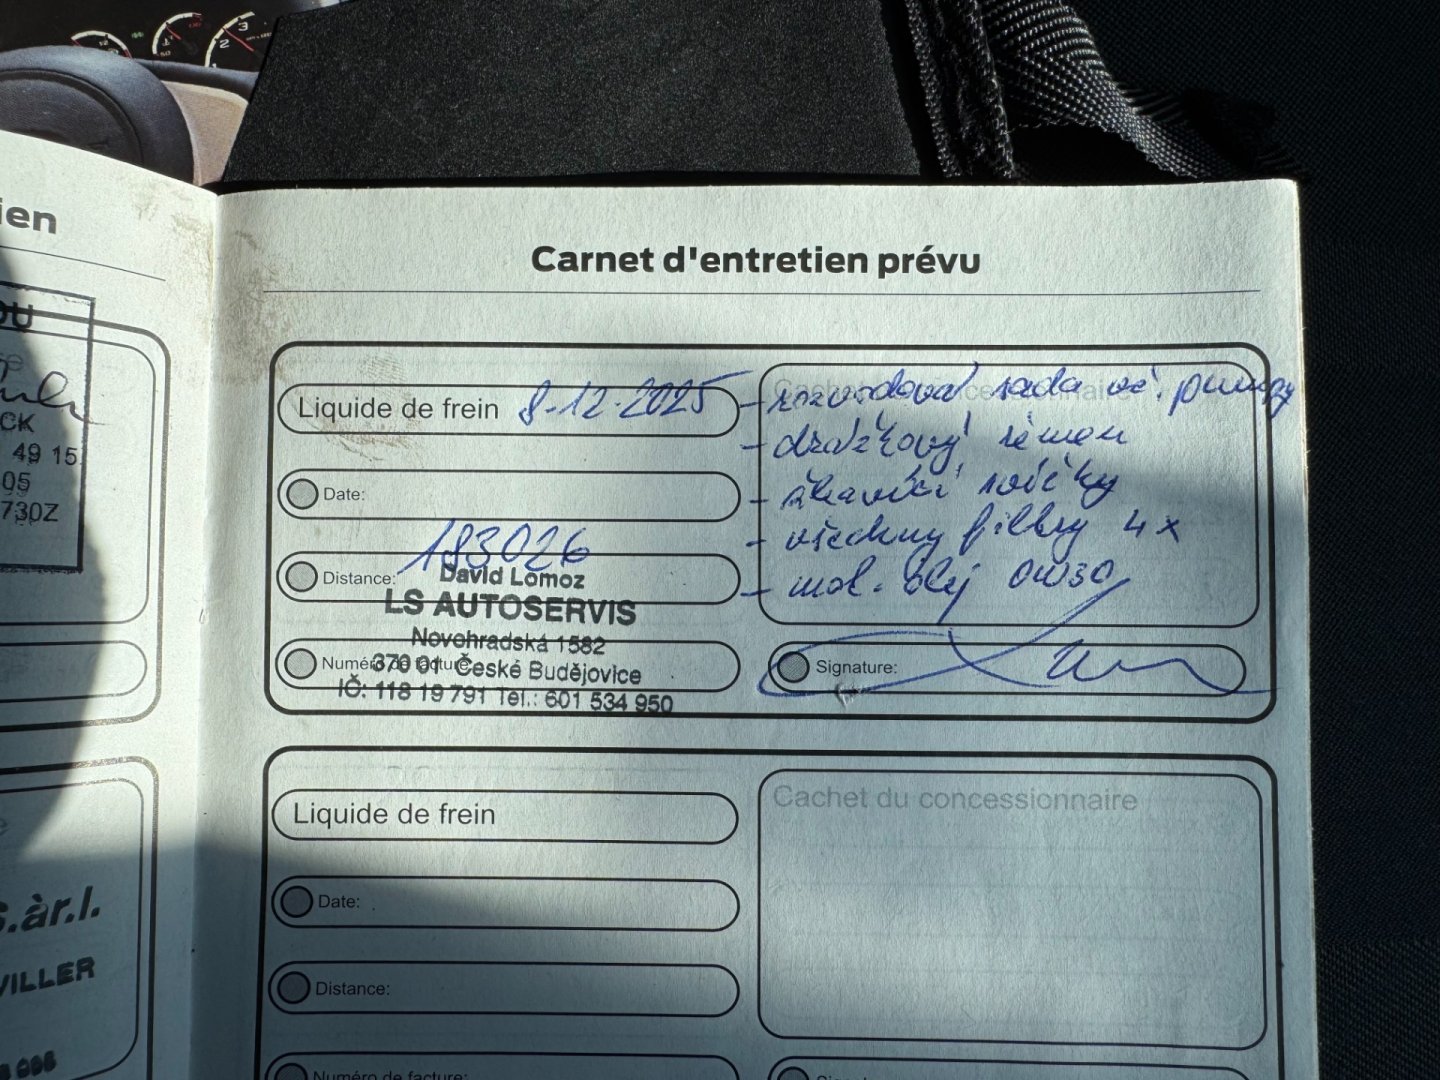 ien
OU
CK
49 15
05
730Z
S.àr.l.
VILLER
Carnet d'entretien prévu
Liquide de frein 8-12-2025
Date:
Distance: 183026
David Lomoz
LS AUTOSERVIS
Novohradská 1582
370 01 České Budějovice
IČ: 118 19 791 Tel.: 601 534 950
Numéro de facture:
Cachet du concessionnaire
- rozvodová sada vč. pumpy
- drážkový řemen
- žhavící svíčky
- všechny filtry 4x
- mot. olej 0W30
Signature:
Liquide de frein
Cachet du concessionnaire
Date:
Distance:
Numéro de facture: